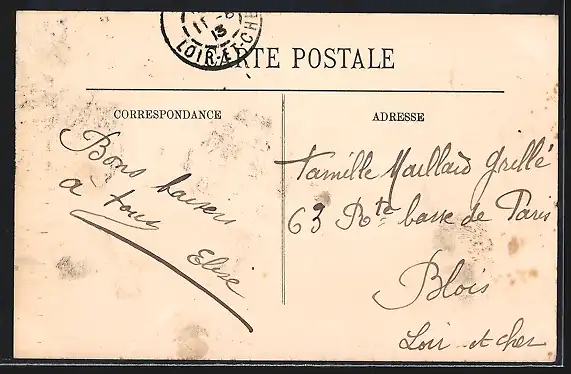 11-6
13
LOIR-ET-CHE
CARTE POSTALE
CORRESPONDANCE
ADRESSE
Bons baisers
à tous
Elise
Famille Maillard Grillé
63 Rte basse de Paris
Blois
Loir et Cher